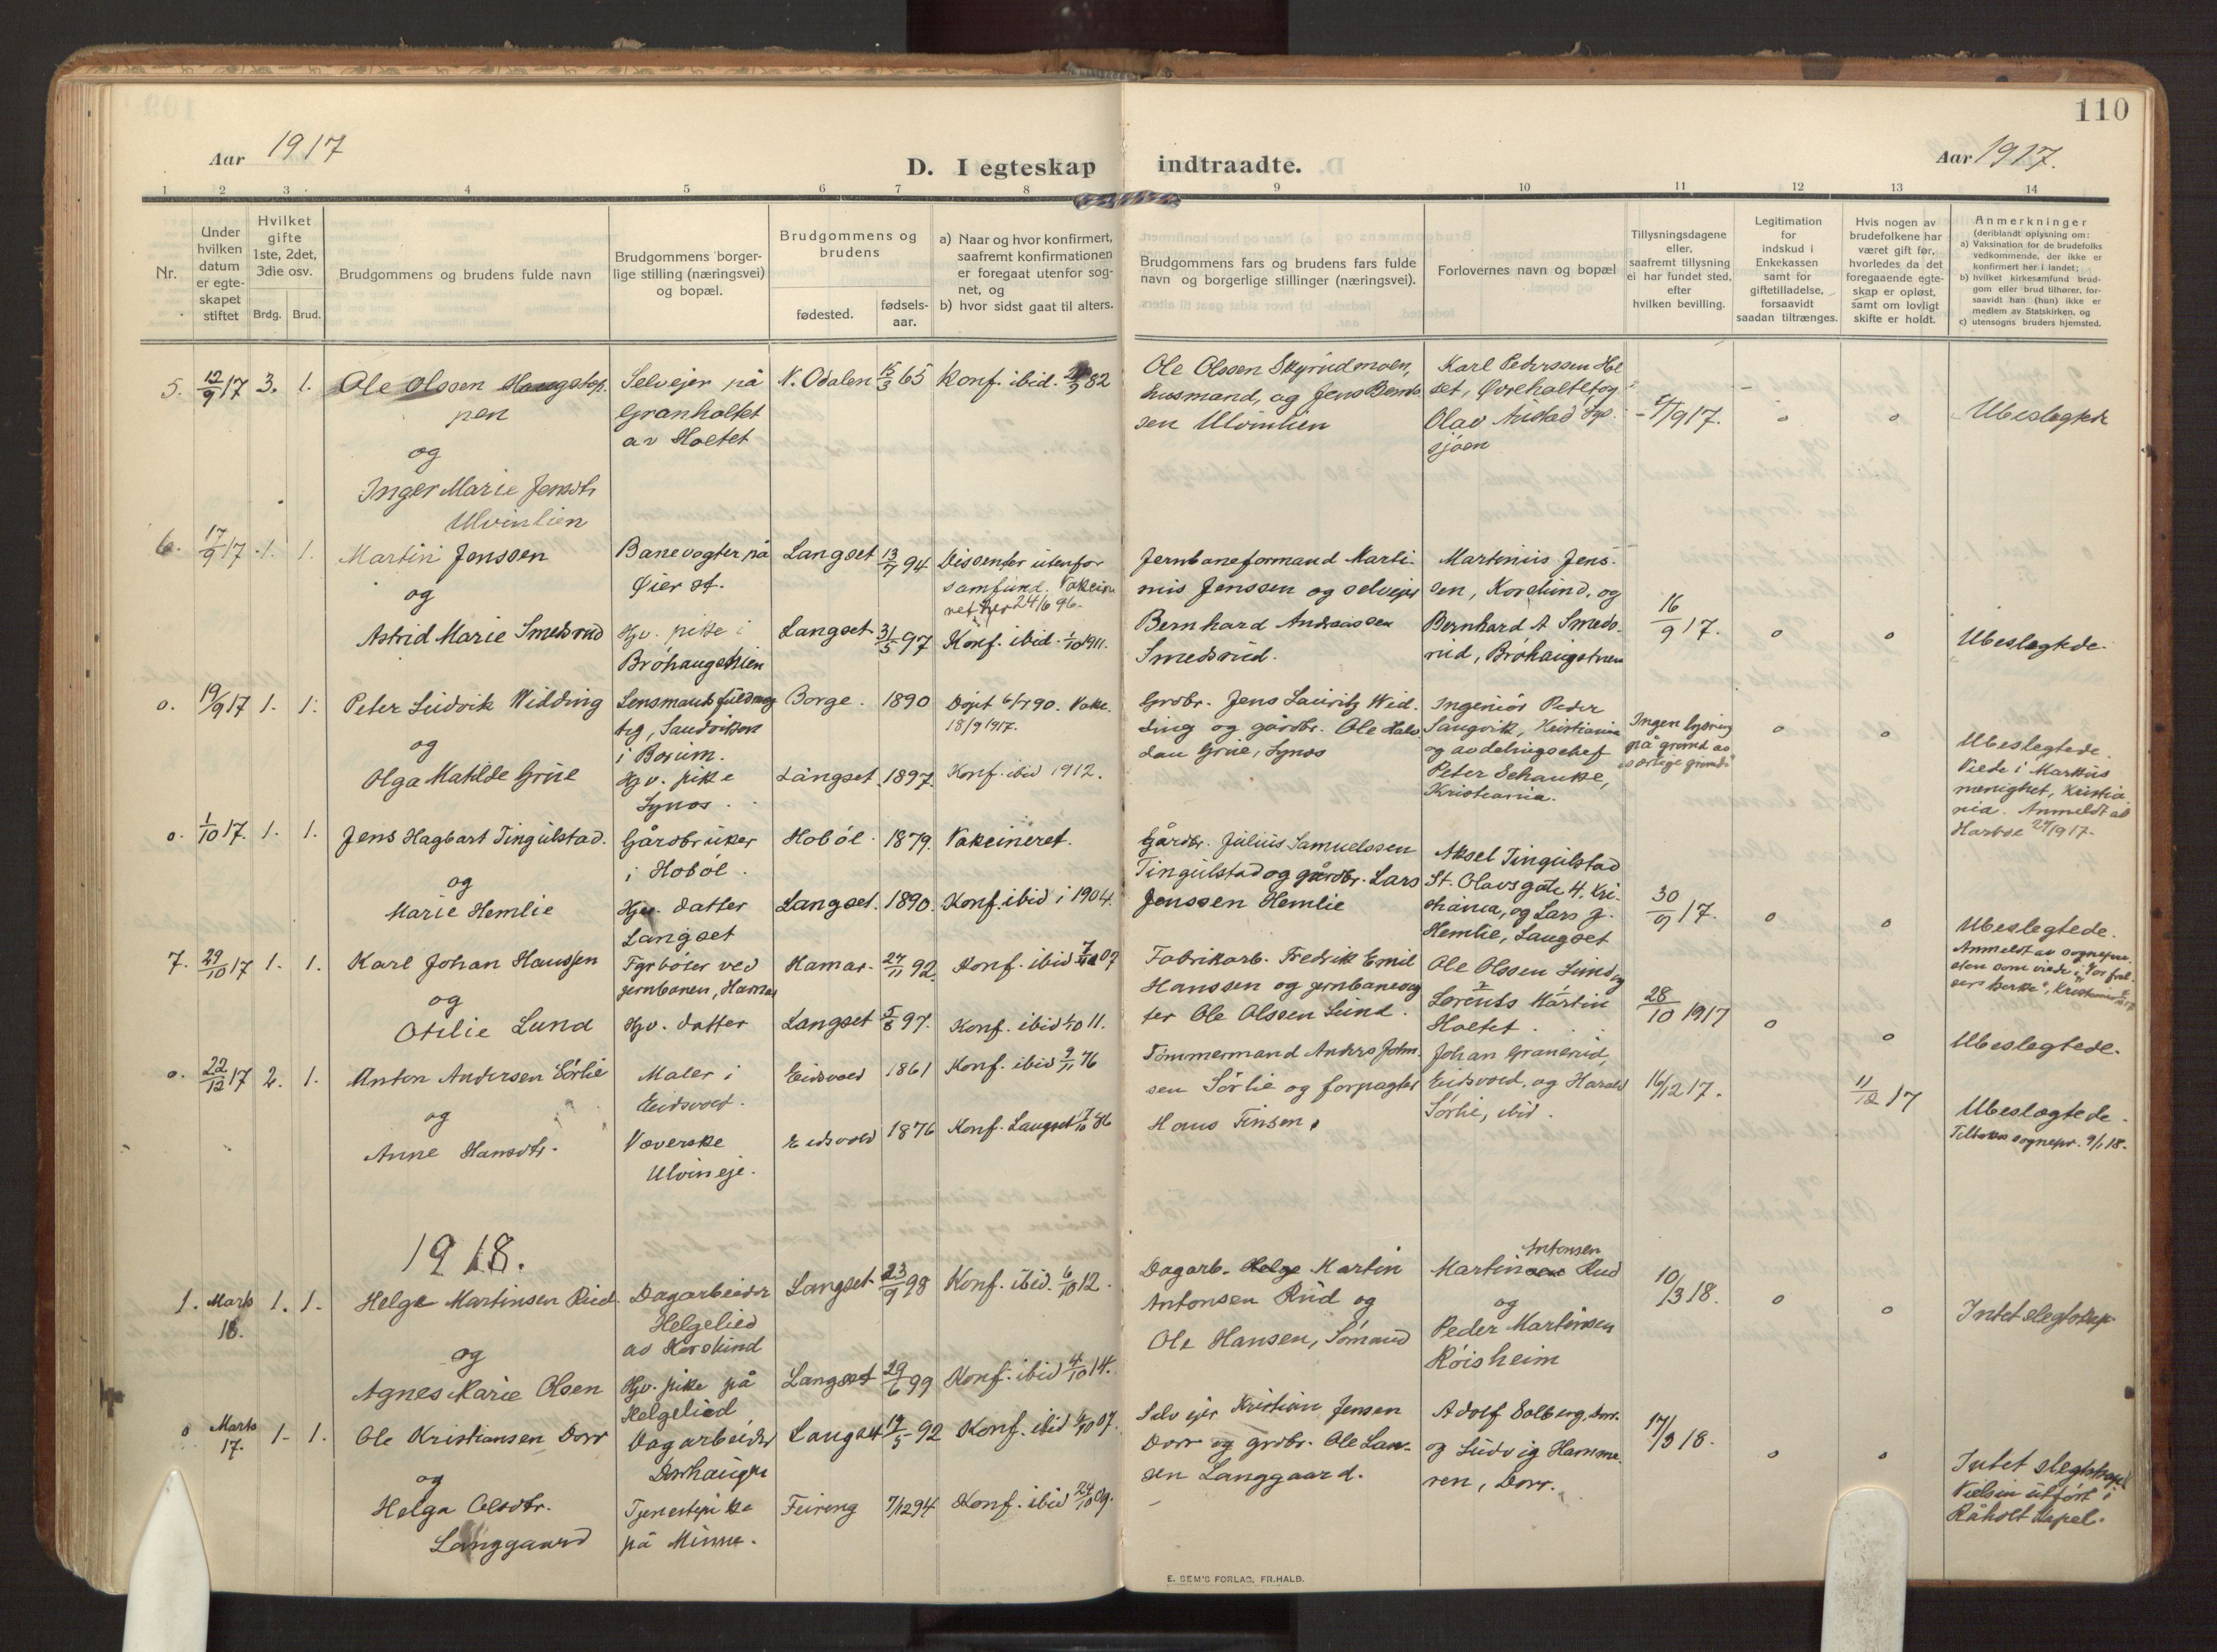 110
Aar 1917
Aar 1917.
D. I egteskap indtraadte.
1 2 3 4 5 6 7 8 9 10 11 12 13 14
Nr.
Under hvilken datum er egte-skapet stiftet
Hvilket gifte 1ste, 2det, 3die osv.
Brdg. Brud.
Brudgommens og brudens fulde navn
Brudgommens borger-lige stilling (næringsvei) og bopæl.
Brudgommens og brudens
fødested.
fødsels-aar.
a) Naar og hvor konfirmert, saafremt konfirmationen er foregaat utenfor sog-net, og
b) hvor sidst gaat til alters.
Brudgommens fars og brudens fars fulde navn og borgerlige stillinger (næringsvei).
Forlovernes navn og bopæl
Tillysningsdagene eller, saafremt tillysning ei har fundet sted, efter hvilken bevilling.
Legitimation for indskud i Enkekassen samt for giftetilladelse, forsaavidt saadan tiltrænges.
Hvis nogen av brudefolkene har været gift før, hvorledes da det foregaaende egte-skap er opløst, samt om lovligt skifte er holdt.
Anmerkninger
(deriblandt oplysning om:
a) Vaksination for de brudefolks vedkommende, der ikke er konfirmert her i landet;
b) hvilket kirkesamfund brud-gom eller brud tilhører, for-saavidt han (hun) ikke er medlem av Statskirken, og
c) utensogns bruders hjemsted.
5. 12/9 17 3. 1. Ole Olssen Haugstep-
pen
og
Inger Marie Jensdtr
Ulvinlien
Selveier på
Granholtet
av Holtet
N. Odalen 15/3 65 Konf. ibid. 82
Ole Olssen Skyrudmoen,
husmand, og Jens Bernt-
sen Ulvinlien
Karl Pederssen Hol
set, Øvreholtet og
Olav Aulstad
sjøen
/9 17. o o Ubeslegtede
6. 17/9 17 1. 1. Martin Jenssen
og
Astrid Marie Smedsrud
Banevogter på
Øier st.
Hjv. pike i
Brøhaugstuen
Langset 13/7 94
Langset 31/5 97
Dissenter utenfor
samfund. Vakcin
neret 24/6 96.
Konf. ibid. 1/10 1911.
Jernbaneformand Marti-
nius Jenssen og selveier
Bernhard Andreassen
Smedsrud.
Martinius Jens-
sen, Korslund, og
Bernhard A Smeds-
rud, Brøhaugstuen
16/9 17. o o Ubeslegtede.
o. 19/9 17 1. 1. Peter Ludvik Widding
og
Olga Matilde Grue
Lensmandsfuldmæg
tig, Sandviken
i Bærum.
Hjv. pike
Synos.
Borge. 1890
Langset 1897.
Døpt 6/7 90. Vakc.
18/9 1917.
Konf. ibid 1912.
Grdbr. Jens Lauritz Wid-
ding og gårdbr. Ole Halv
dan Grue, Synos
Ingeniør Peder
Langvik, Kristiania
og avdelingschef
Peter Schanke,
Kristiania.
Ingen lysning
på grund av
særlige grunde
o o Ubeslegtede
Viede i Markus
menighet, Kristia
nia. Anmeldt av
Harboe 24/9 17.
o. 1/10 17. 1. 1. Jens Hagbart Tingulstad.
og
Marie Hemlie
Gårdbruker
i Hobøl.
Hjv. datter
Langset
Hobøl. 1879.
Langset. 1890.
Vakcineret.
Konf. ibid i 1904.
Gårdbr. Julius Samuelssen
Tingulstad og gårdbr. Lars
Jenssen Hemlie
Aksel Tingulstad
St. Olavsgate 4. Kri-
stiania, og Lars J.
Hemlie, Langset
30/9 17. o o Ubeslegtede.
Anmeldt av sognepre-
sten som viede i "Vor frel-
sers kirke", Kristiania
7. 29/10 17 1. 1. Karl Johan Hanssen
og
Otilie Lund
Fyrbøter ved
jernbanen, Hamar
Hjv. datter
Hamar. 27/11 92.
Langset 5/8 97.
Konf. ibid 07
Konf. ibid 1/10 11.
Fabrikarb. Fredrik Emil
Hanssen og jernbanevog
ter Ole Olssen Lund.
Ole Olssen Lund og
Lorents Martin
Holtet.
28/10 1917 o o Ubeslegtede.
o. 22/12 17 2. 1. Anton Andersen Sörlie
og
Anne Hansdtr.
Maler i
Eidsvold.
Væverske
Ulvineje.
Eidsvold 1861
Eidsvold 1876
Konf. ibid 9/11 76
Konf. Langset 7/10 86
Tömmermand Anders John-
sen Sörlie og forpagter
Hans Finsen.
Johan Granerud,
Eidsvold, og Harald
Sörlie, ibid.
16/12 17. 11/12 17 Ubeslegtede.
sognepr. 9/1 18.
1918.
1. Marts 18. 1. 1. Helge Martinsen Rud.
og
Agnes Marie Olsen
Dagarbeider
Helgelied
av Korslund
Hjv. pike på
Helgelied
Langset 23/9 98
Langset 29/6 99
Konf. ibid. 6/10 12.
Konf. ibid 4/10 14.
Dagarb. Helge Martin
Antonsen Rud og
Ole Hansen, Sömand
Antonsen
Martinsen Rud
og
Peder Martinsen
Röisheim
10/3 18. o o Intet slegtskap
o Marts 17. 1. 1. Ole Kristiansen Dorr
og
Helga Olsdtr.
Langgaard
Dagarbeider
Dorrhaugen
Tjenestepike
på Minne.
Langset 19/5 92
Feiring 7/12 94
Konf. ibid 6/10 07.
Konf. ibid 24/10 09.
Selveier Kristian Jensen
Dorr og grdbr. Ole Lar-
sen Langgaard.
Adolf Solberg, Dorr.
og Ludvig Hamme-
ren, Dorr.
17/3 18. o o Intet slegtskap
Vielsen utført i
Råholt Kapel.
E. SEM'S FORLAG, FR.HALD.